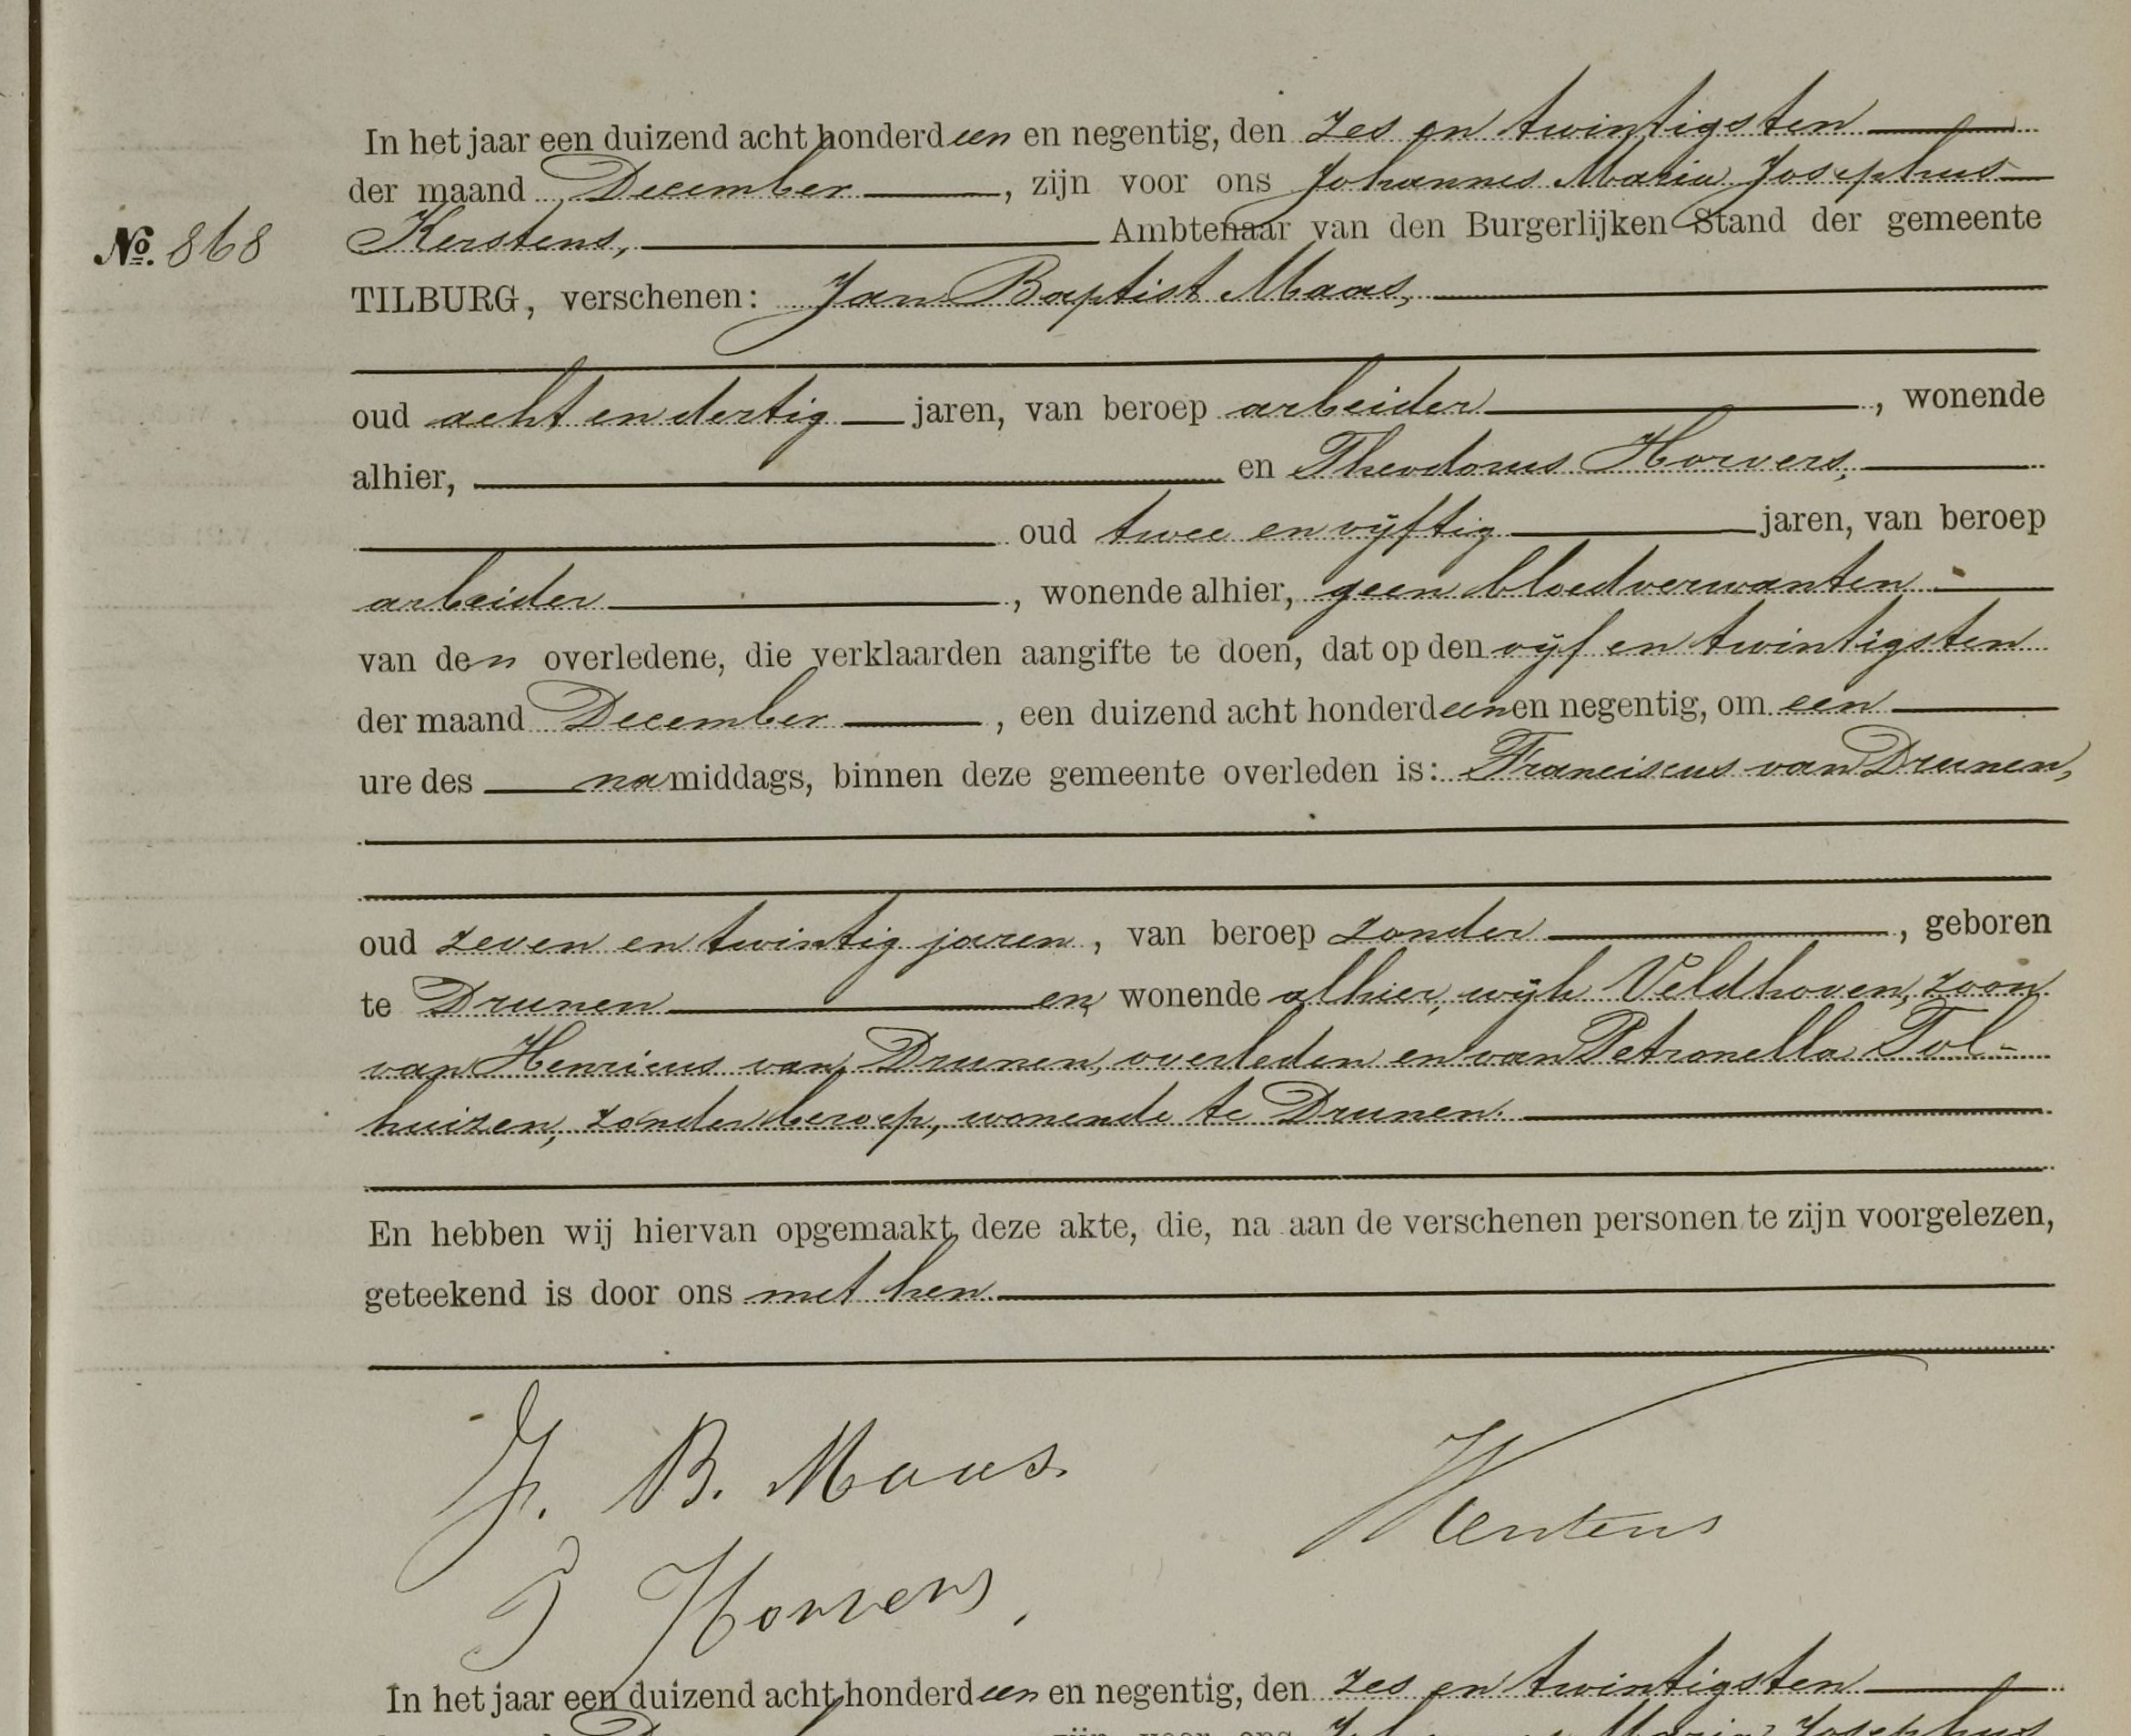 In het jaar een duizend acht honderd een en negentig, den zes en twintigsten
der maand December, zijn voor ons Johannes Maria Josephus
№. 868 Kerstens, Ambtenaar van den Burgerlijken Stand der gemeente
TILBURG, verschenen: Jan Baptist Maas,
oud acht en dertig jaren, van beroep arbeider, wonende
alhier, en Theodorus Horvers,
oud twee en vijftig jaren, van beroep
arbeider, wonende alhier, geen bloedverwanten
van den overledene, die verklaarden aangifte te doen, dat op den vijf en twintigsten
der maand December, een duizend acht honderd een en negentig, om een
ure des namiddags, binnen deze gemeente overleden is: Franciscus van Drunen,
oud zeven en twintig jaren, van beroep zonder, geboren
te Drunen en wonende alhier, wijk Veldhoven, zoon
van Henricus van Drunen, overleden en van Petronella Tol-
huizen, zonder beroep, wonende te Drunen.
En hebben wij hiervan opgemaakt deze akte, die, na aan de verschenen personen te zijn voorgelezen,
geteekend is door ons met hen.
J. B. Maas
Kerstens
T Horvers,
In het jaar een duizend acht honderd een en negentig, den zes en twintigsten
zijn voor ons Johannes Maria Josephus